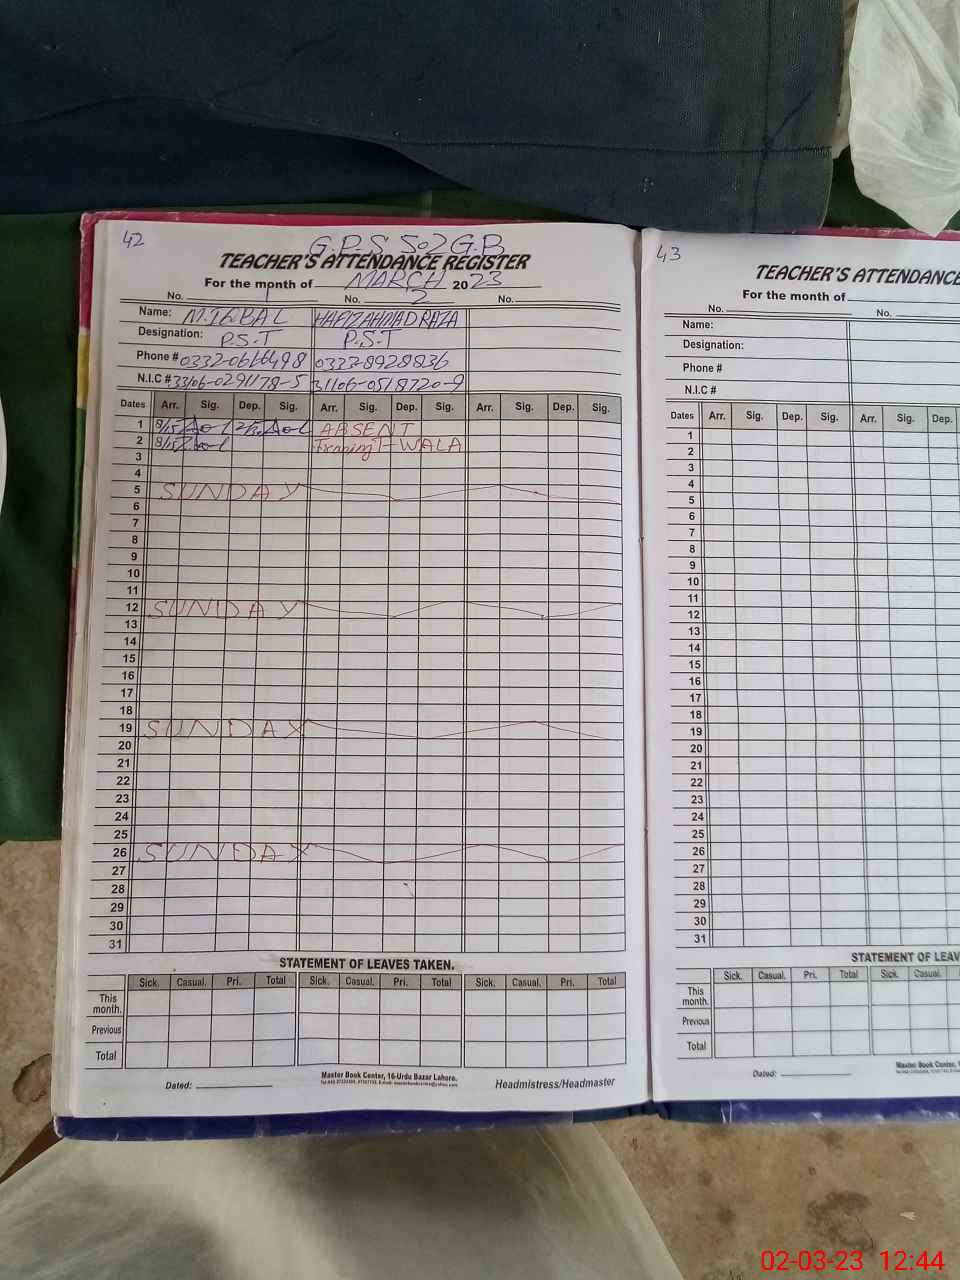 42
G.P.S 502 G.B
TEACHER'S ATTENDANCE REGISTER
For the month of MARCH 2023
No. 1 No. 2 No.
Name: M.IQBAL HAFIZ AHMAD RAZA
Designation: P.S.T P.S.T
Phone # 0332-0616498 0333-8928836
N.I.C # 33106-0291178-5 31106-0518720-9
Dates Arr. Sig. Dep. Sig. Arr. Sig. Dep. Sig. Arr. Sig. Dep. Sig.
1 8/15 ABSENT
2 8/15 WALA
3
4
5 SUNDAY
6
7
8
9
10
11
12 SUNDAY
13
14
15
16
17
18
19 SUNDAY
20
21
22
23
24
25
26 SUNDAY
27
28
29
30
31
STATEMENT OF LEAVES TAKEN.
Sick. Casual. Pri. Total Sick. Casual. Pri. Total Sick. Casual. Pri. Total
This month.
Previous
Total
Master Book Center, 16-Urdu Bazar Lahore.
Dated: Headmistress/Headmaster
43
TEACHER'S ATTENDANCE
For the month of
No. No.
Name:
Designation:
Phone #
N.I.C #
Dates Arr. Sig. Dep. Sig. Arr. Sig. Dep.
1
2
3
4
5
6
7
8
9
10
11
12
13
14
15
16
17
18
19
20
21
22
23
24
25
26
27
28
29
30
31
STATEMENT OF LEAV
Sick. Casual. Pri. Total Sick. Casual.
This month.
Previous
Total
Master Book Center, 16
Dated:
02-03-23 12:44